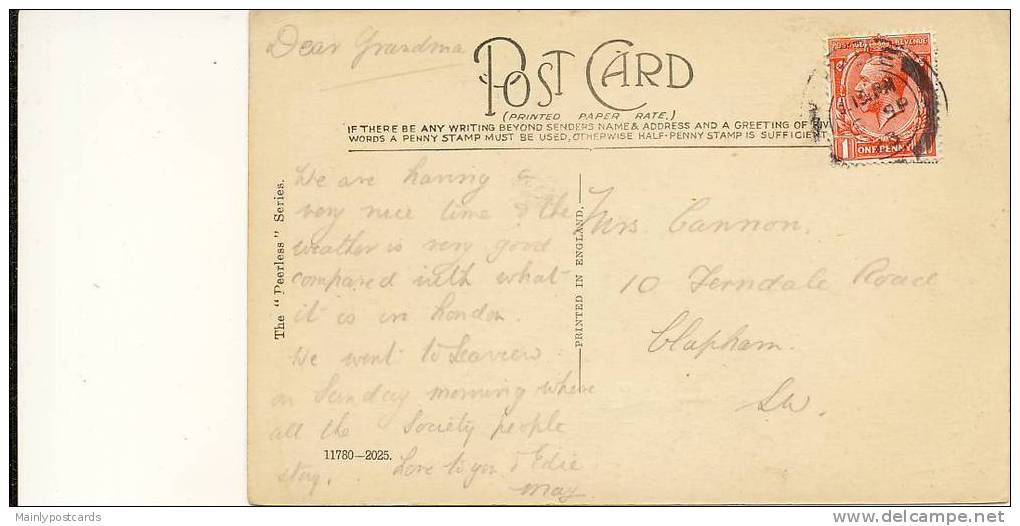 Dear Grandma
POST CARD
(PRINTED PAPER RATE.)
IF THERE BE ANY WRITING BEYOND SENDERS NAME & ADDRESS AND A GREETING OF FIVE
WORDS A PENNY STAMP MUST BE USED, OTHERWISE HALF-PENNY STAMP IS SUFFICIENT.
POSTAGE REVENUE
1 ONE PENNY 1
We are having a
very nice time & the
weather is very good
compared with what
it is in London.
We went to Seaview
on Sunday morning where
all the Society people
stay. Love to you & Edie
May
The "Peerless" Series.
PRINTED IN ENGLAND.
11780—2025.
Mrs. Cannon.
10 Ferndale Road
Clapham.
SW.
Mainlypostcards
delcampe.net